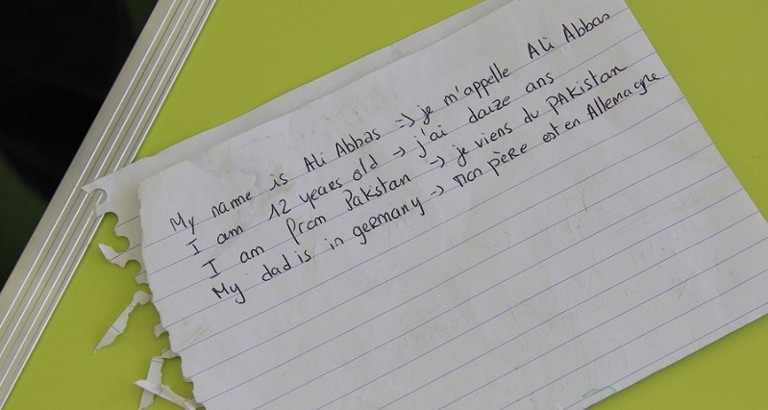 My name is Ali Abbas -> je m'appelle Ali Abbas
I am 12 years old -> j'ai douze ans
I am From Pakistan -> je viens du PAKistan
My dad is in germany -> mon père est en Allemagne